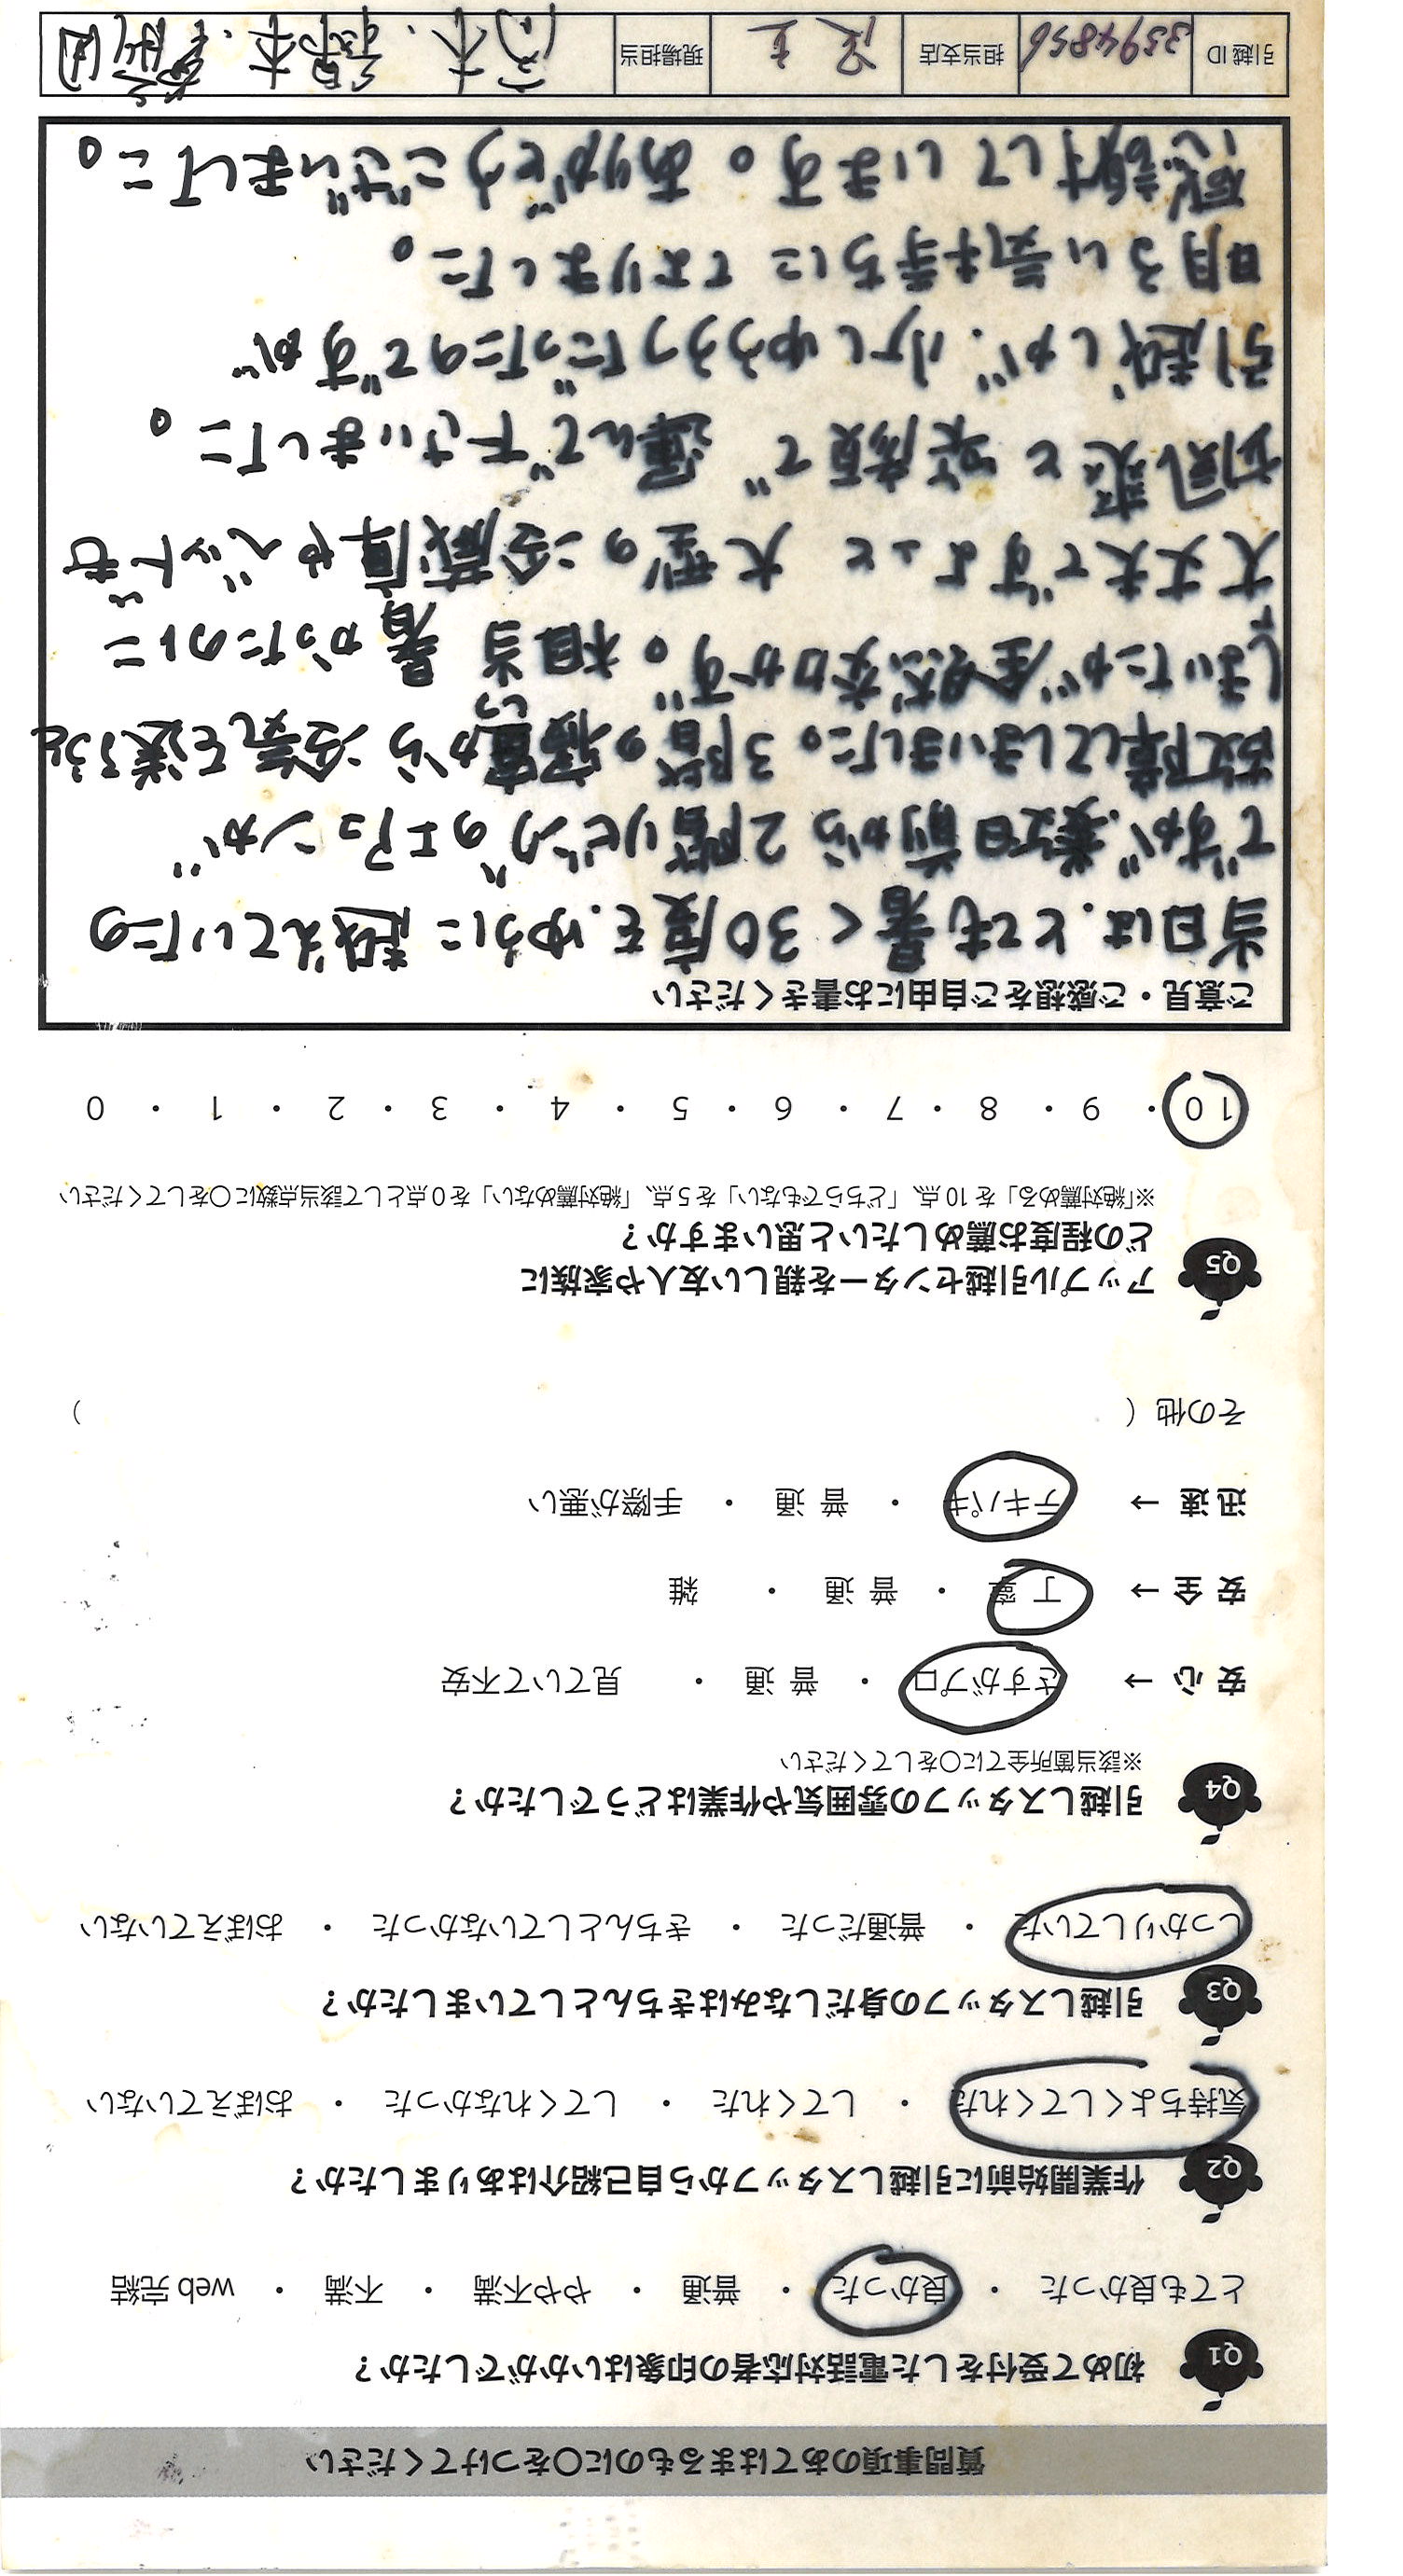 質問事項のあてはまるものに〇をつけてください
Q1 初めて受付をした電話対応者の印象はいかがでしたか？
とても良かった ・ 良かった ・ 普通 ・ やや不満 ・ 不満 ・ web 完結
Q2 作業開始前に引越しスタッフから自己紹介はありましたか？
気持ちよくしてくれた ・ してくれた ・ してくれなかった ・ おぼえていない
Q3 引越しスタッフの身だしなみはきちんとしていましたか？
しっかりしていた ・ 普通だった ・ きちんとしていなかった ・ おぼえていない
Q4 引越しスタッフの雰囲気や作業はどうでしたか？
※該当箇所全てに〇をしてください
安心 → さすがプロ ・ 普通 ・ 見ていて不安
安全 → 丁寧 ・ 普通 ・ 雑
迅速 → テキパキ ・ 普通 ・ 手際が悪い
その他（ ）
Q5 アップル引越センターを親しい友人や家族に
どの程度お薦めしたいと思いますか？
※「絶対薦める」を10点、「どちらでもない」を5点、「絶対薦めない」を0点として該当点数に〇をしてください
10 ・ 9 ・ 8 ・ 7 ・ 6 ・ 5 ・ 4 ・ 3 ・ 2 ・ 1 ・ 0
ご意見・ご感想をご自由にお書きください
当日は、とても暑く30度を、ゆうに越えていたの
ですが、数日前から2階リビングのエアコンが
故障してしまいました。3階の寝室から冷気を送ろうと
しましたが全然効かず。相当暑かったのに
大丈夫ですよっと 大型の冷蔵庫やベットも
と笑顔で 運んで下さいました。
引越しが、少しゆううつだったのですが
明るい気持ちになりました。
感謝しています。ありがとうございました。
引越ID 3394856 担当支店 埼玉 現場担当